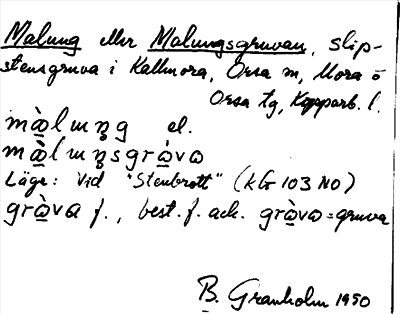 Malung eller Malungsgruvan, slip-
stensgruva i Kallmora, Orsa sn, Mora o
Orsa tg, Kopparb. l.
mà̱lɯŋg el.
mà̱lɯŋsgrà̱va
Läge: Vid "Stenbrott" (kbl 103 NO)
grà̱va f., best. f. ack. grà̱va = gruva
B. Granholm 1950